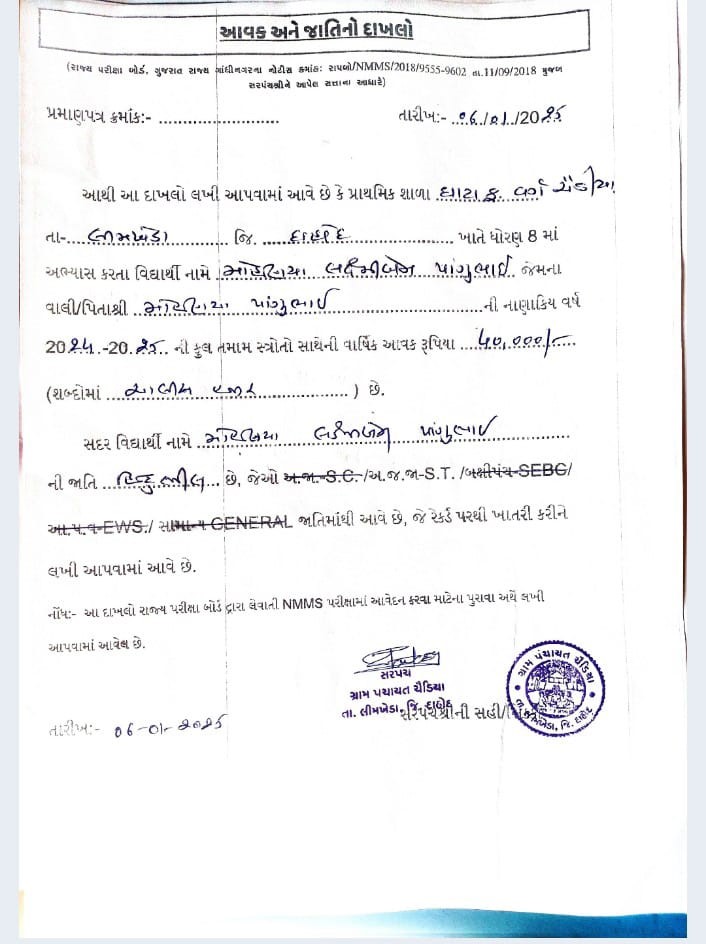 આવક અને જાતિનો દાખલો
(રાજ્ય પરીક્ષા બોર્ડ, ગુજરાત રાજ્ય ગાંધીનગરના નોટીસ ક્રમાંક: રાપબો/NMMS/2018/9555-9602 તા.11/09/2018 મુજબ
સરપંચશ્રીને આપેલ સત્તાના આધારે)
પ્રમાણપત્ર ક્રમાંક:- ............................ તારીખ:- 06/01/2025
આથી આ દાખલો લખી આપવામાં આવે છે કે પ્રાથમિક શાળા ઘાટા ફ. વર્ગ ચૈડીયા
તા-....લીમખેડા............ જિ. ....દાહોદ.................... ખાતે ધોરણ 8 માં
અભ્યાસ કરતા વિદ્યાર્થી નામે લક્ષ્મીબેન પાંગુભાઈ જેમના
વાલી/પિતાશ્રી પાંગુભાઈ ની નાણાકિય વર્ષ
2024-2025 ની કુલ તમામ સ્ત્રોતો સાથેની વાર્ષિક આવક રૂપિયા ....40,000/-....
(શબ્દોમાં ...ચાલીસ હજાર.....................) છે.
સદર વિદ્યાર્થી નામે પાંગુભાઈ
ની જાતિ ...હિન્દુ ભીલ... છે, જેઓ અ.જા.-S.C./અ.જ.જા-S.T. /બક્ષીપંચ-SEBC/
આ.પ.વ-EWS./ સામાન્ય GENERAL જાતિમાંથી આવે છે, જે રેકર્ડ પરથી ખાતરી કરીને
લખી આપવામાં આવે છે.
નોંધ:- આ દાખલો રાજ્ય પરીક્ષા બોર્ડ દ્વારા લેવાતી NMMS પરીક્ષામાં આવેદન કરવા માટેના પુરાવા અર્થે લખી
આપવામાં આવેલ છે.
સરપંચ
ગ્રામ પંચાયત ચૈડિયા
તા. લીમખેડા, જિ. દાહોદ
સરપંચશ્રીની સહી/
ગ્રામ પંચાયત ચૈડિયા
તા. લીમખેડા, જિ. દાહોદ
તારીખ:- 06-01-2025